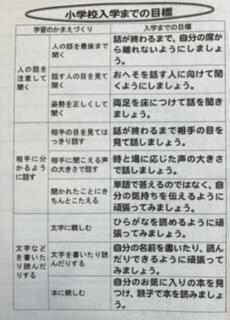 小学校入学までの目標
学習のかまえづくり
入学までの目標
人の話を
注意して
聞く
人の話を最後まで
聞く
話が終わるまで、自分の席か
ら離れないようにしましょ
う。
話す人の目を見て
聞く
おへそを話す人に向けて聞
くようにしましょう。
姿勢を正しくして
聞く
両足を床につけて話を聞き
ましょう。
相手に分
かるよう
に話す
相手の目を見ては
っきり話す
話が終わるまで相手の目を
見て話しましょう。
相手に聞こえる声
の大きさで話す
時と場に応じた声の大きさ
で話しましょう。
聞かれたことにき
ちんとこたえる
単語で答えるのではなく、自
分の気持ちを伝えるように
頑張ってみましょう。
文字など
を書いた
り読んだ
りする
文字に親しむ
ひらがなを読めるように頑
張ってみましょう。
文字を書いたり読
んだりする
自分の名前を書いたり、読ん
だりできるように頑張って
みましょう。
本に親しむ
自分のお気に入りの本を見
つけ、親子で本を読みましょ
う。